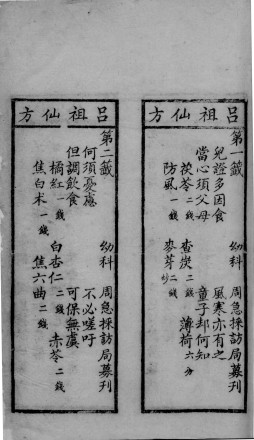 呂祖仙方
第一籤 幼科 周急採訪局募刊
兒證多因食 風寒亦有之
當心須父母 童子却何知
茯苓二錢 查炭二錢 薄荷六分
防風一錢 麥芽二錢炒
呂祖仙方
第二籤 幼科 周急採訪局募刊
何須憂慮 不必嗟吁
但調飲食 可保無虞
橘紅一錢 白杏仁二錢 赤苓二錢
焦白朮一錢 焦六曲二錢